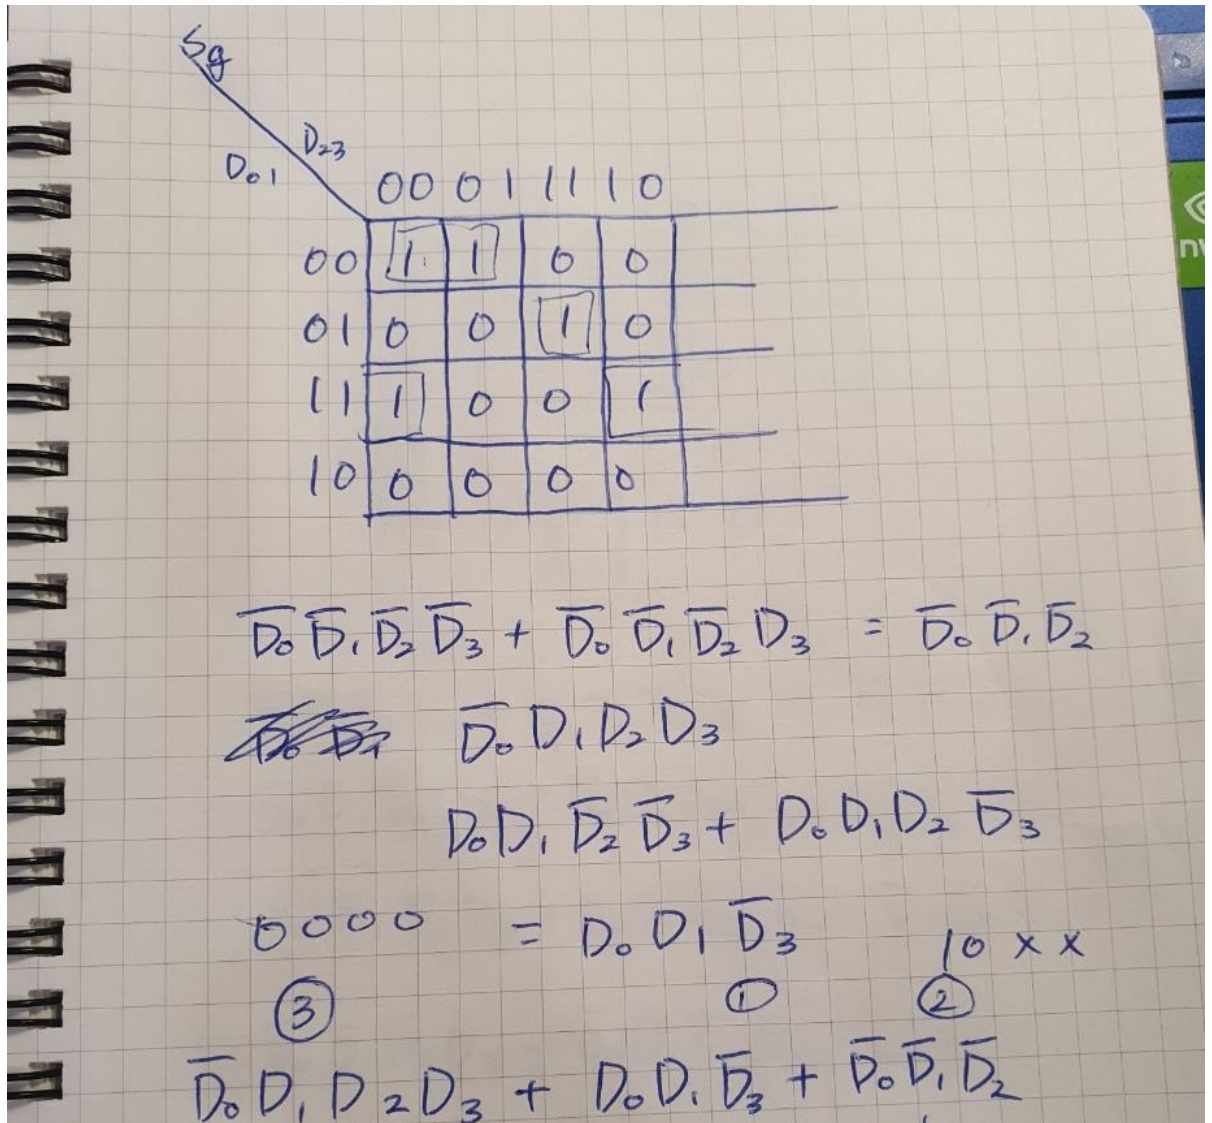 Sg
D₂₃
D₀₁
00 01 11 10
00 1 1 0 0
01 0 0 1 0
11 1 0 0 1
10 0 0 0 0
D̅₀ D̅₁ D̅₂ D̅₃ + D̅₀ D̅₁ D̅₂ D₃ = D̅₀ D̅₁ D̅₂
D̅₀ D₁ D₂ D₃
D₀ D₁ D̅₂ D̅₃ + D₀ D₁ D₂ D̅₃
0000 = D₀ D₁ D̅₃ 10 x x
③ ① ②
D̅₀ D₁ D₂ D₃ + D₀ D₁ D̅₃ + D̅₀ D̅₁ D̅₂